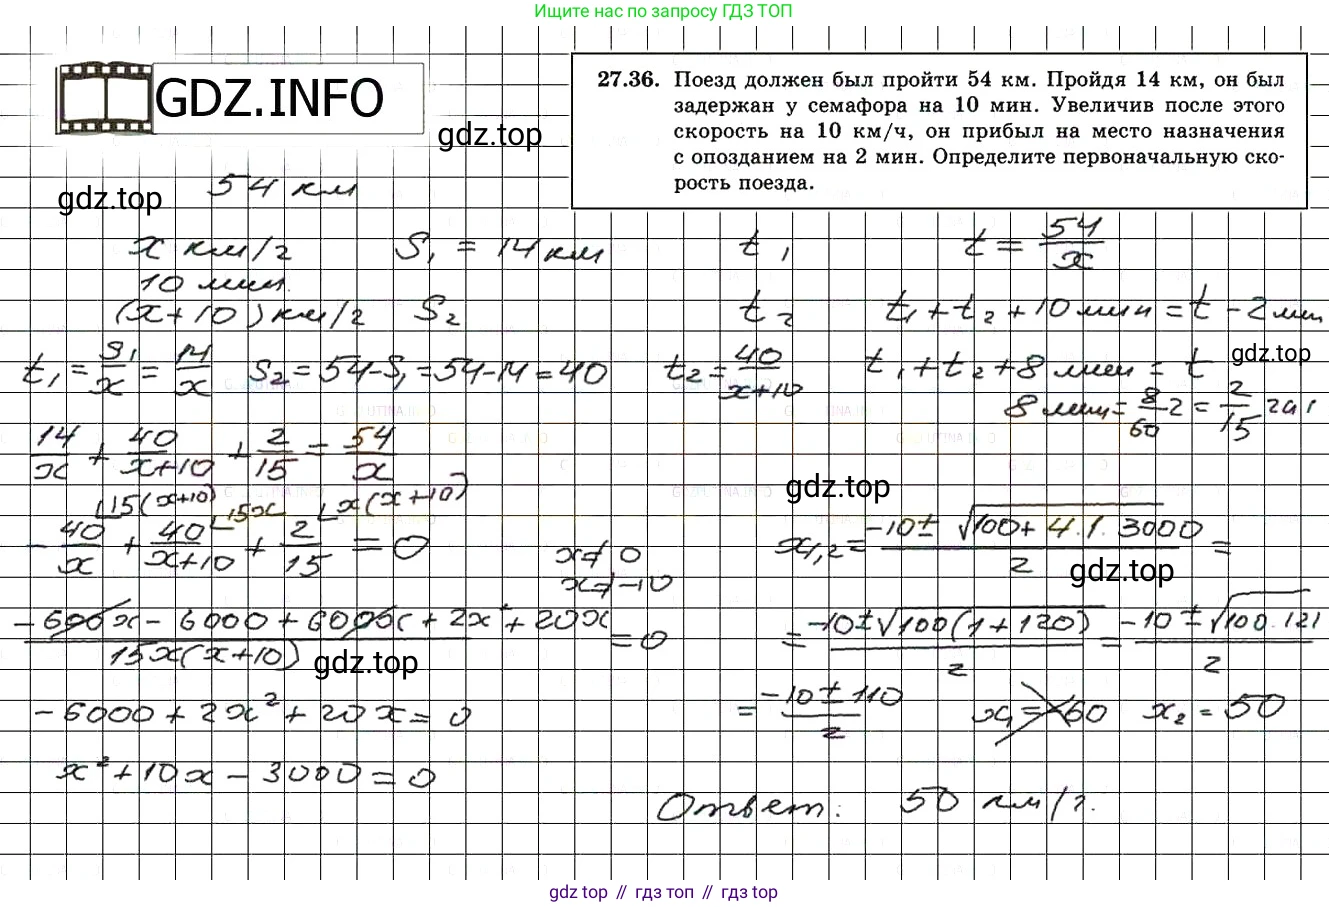 Ищите нас по запросу ГДЗ ТОП
GDZ.INFO
gdz.top
27.36. Поезд должен был пройти 54 км. Пройдя 14 км, он был
задержан у семафора на 10 мин. Увеличив после этого
скорость на 10 км/ч, он прибыл на место назначения
с опозданием на 2 мин. Определите первоначальную ско-
рость поезда.
gdz.top
54 км
x км/г S₁ = 14 км t₁ t = 54/x
10 мин.
(x+10) км/г S₂ t₂ t₁ + t₂ + 10 мин = t - 2 мин
t₁ = S₁/x = 14/x S₂ = 54-S₁ = 54-14 = 40 t₂ = 40/(x+10) t₁ + t₂ + 8 мин = t
gdz.top
8 мин = 8/60 г = 2/15 гас
14/x + 40/(x+10) + 2/15 = 54/x
gdz.top
15(x+10) 15x x(x+10)
-40/x + 40/(x+10) + 2/15 = 0
x≠0
x≠-10
x₁,₂ = (-10 ± √(100+4·1·3000))/2 =
gdz.top
(-600x - 6000 + 600x + 2x² + 20x)/(15x(x+10)) = 0
gdz.top
= (-10 ± √(100(1+120)))/2 = (-10 ± √(100·121))/2
-6000 + 2x² + 20x = 0
= (-10 ± 110)/2 x₁ = -60 x₂ = 50
x² + 10x - 3000 = 0
Ответ: 50 км/г.
gdz top // гдз топ // гдз top